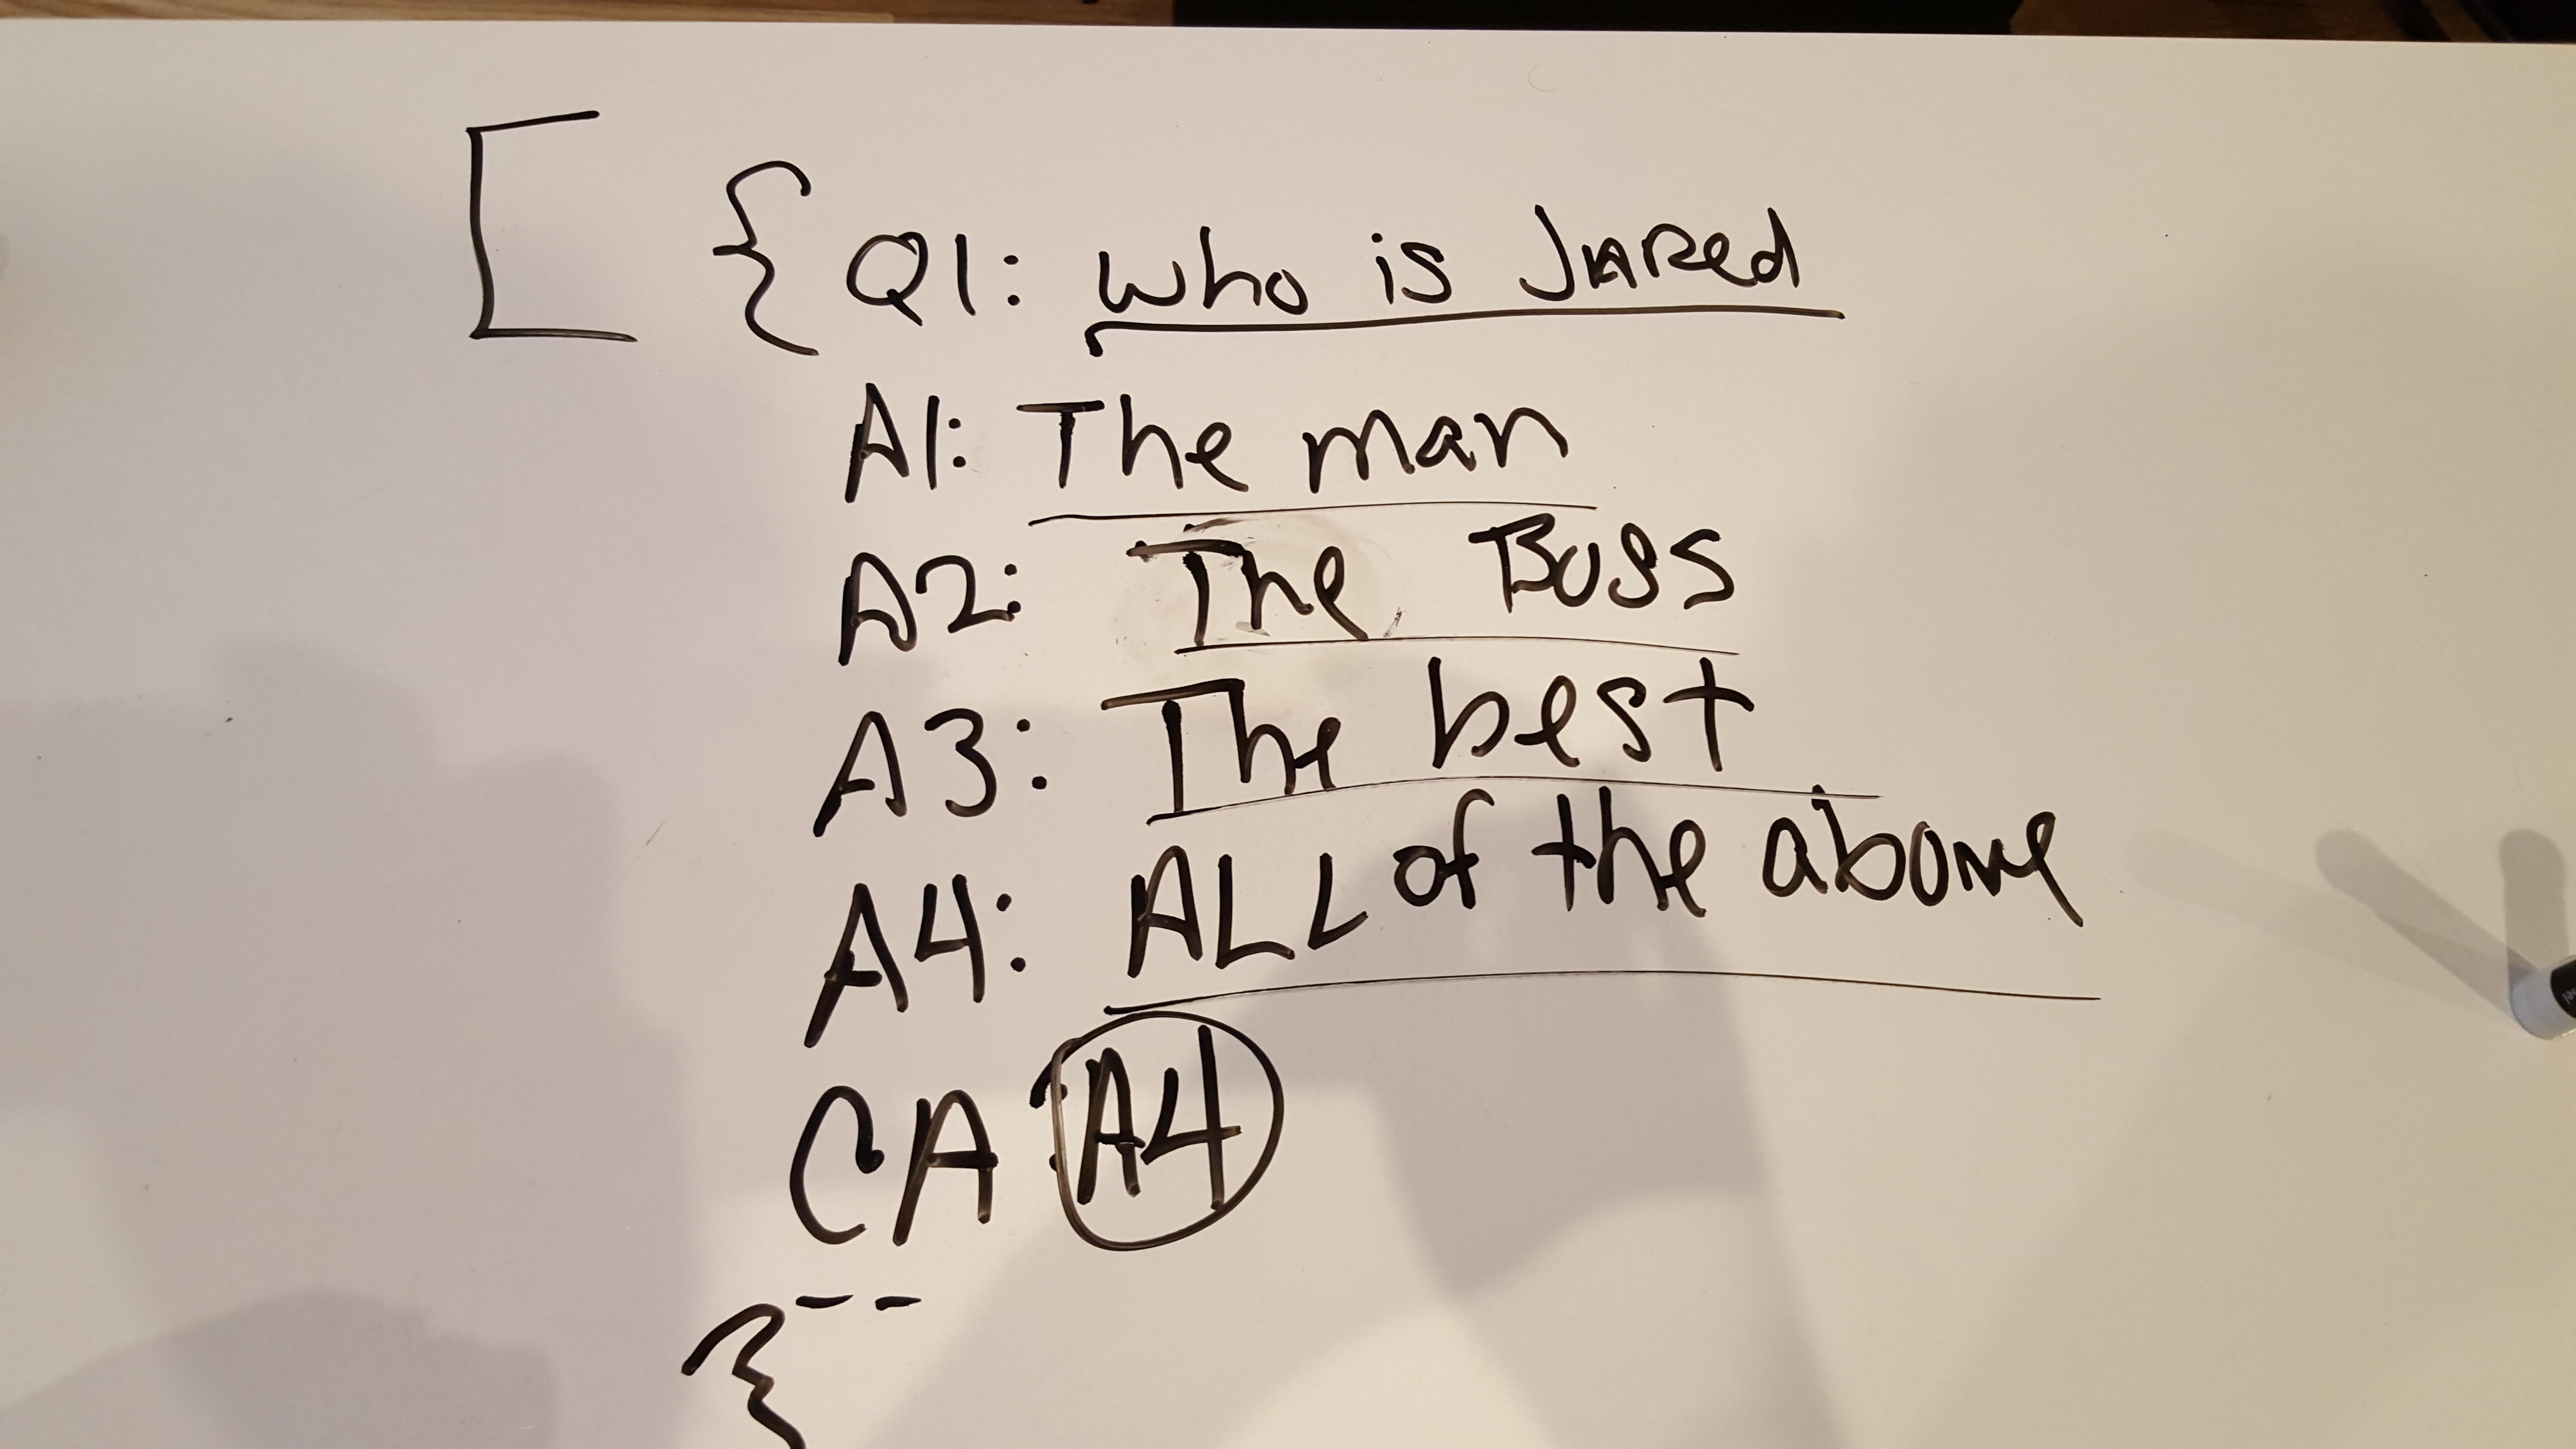 [ { Q1: who is JARed
A1: The man
A2: The Boss
A3: The best
A4: ALL of the above
CA : A4
--
}